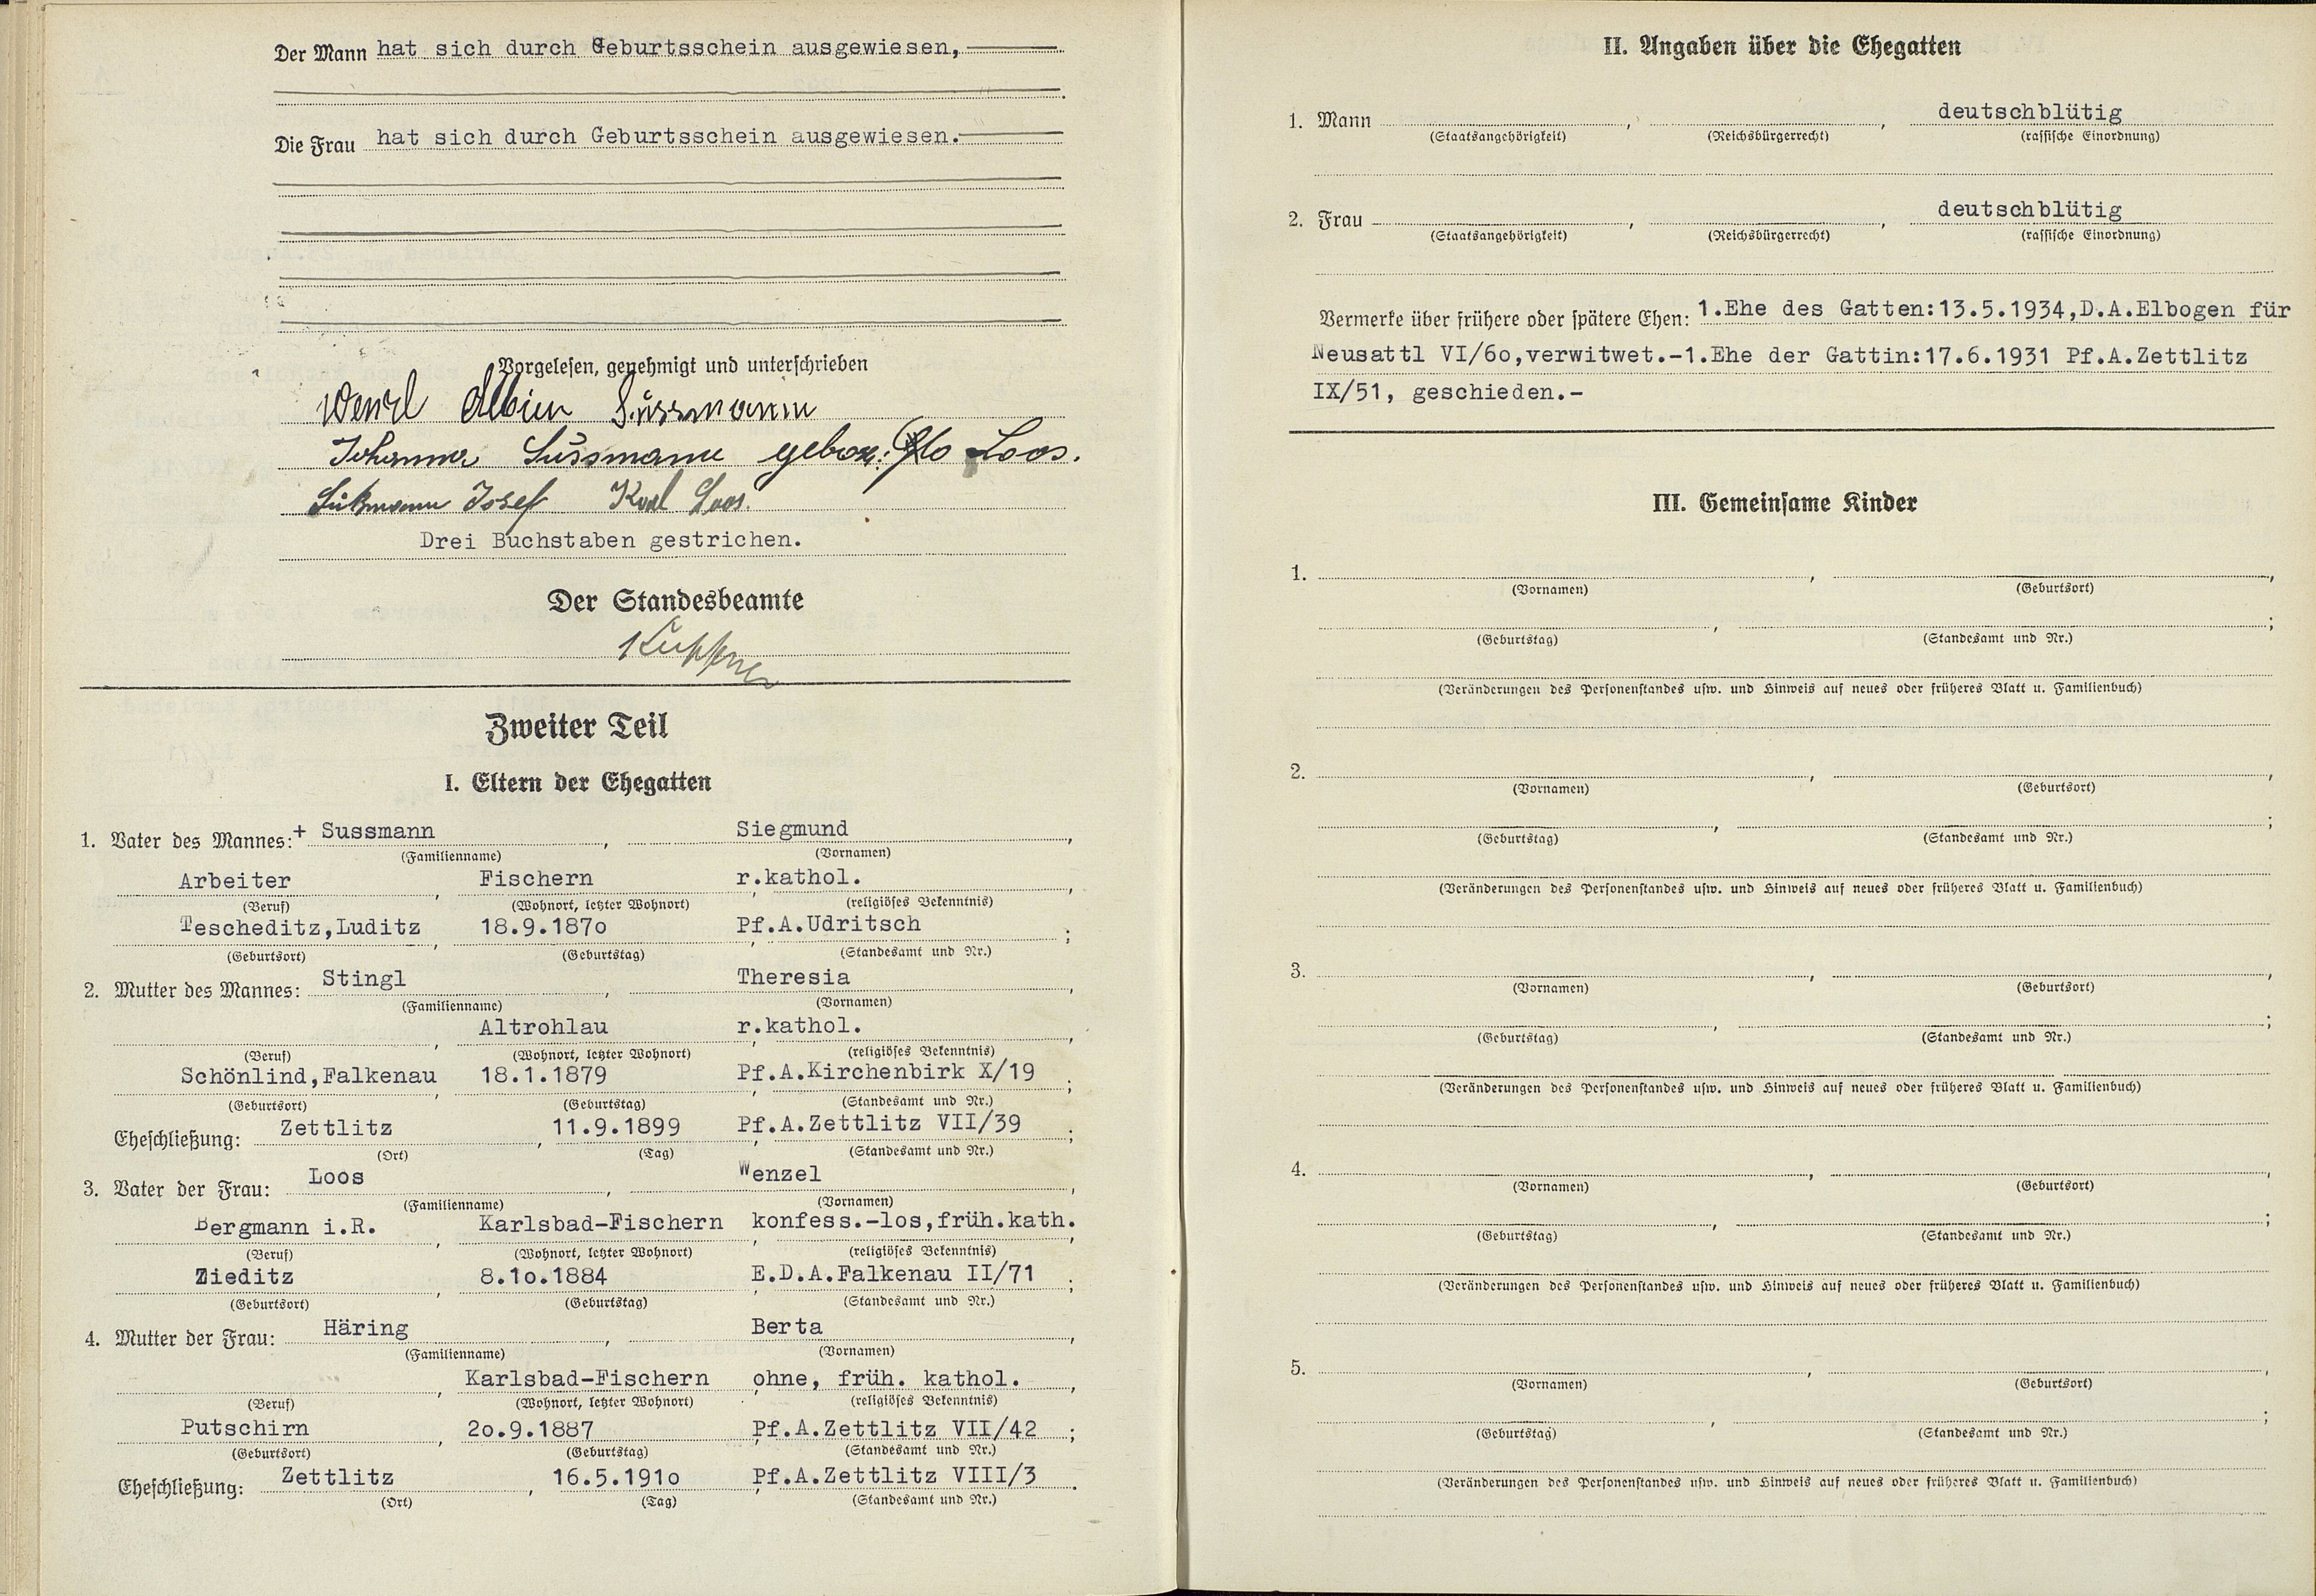 Der Mann hat sich durch Geburtsschein ausgewiesen,
Die Frau hat sich durch Geburtsschein ausgewiesen.
Vorgelesen, genehmigt und unterschrieben
Wenzl Albin Süssmann
Johanna Sussmann gebor: Loos.
Süßmann Josef Karl Loos.
Drei Buchstaben gestrichen.
Der Standesbeamte
Zweiter Teil
I. Eltern der Ehegatten
1. Vater des Mannes: + Sussmann, Siegmund,
(Familienname) (Vornamen)
Arbeiter, Fischern, r.kathol.,
(Beruf) (Wohnort, letzter Wohnort) (religiöses Bekenntnis)
Tescheditz,Luditz, 18.9.187o, Pf.A.Udritsch ;
(Geburtsort) (Geburtstag) (Standesamt und Nr.)
2. Mutter des Mannes: Stingl, Theresia,
(Familienname) (Vornamen)
, Altrohlau, r.kathol.,
(Beruf) (Wohnort, letzter Wohnort) (religiöses Bekenntnis)
Schönlind,Falkenau, 18.1.1879, Pf.A.Kirchenbirk X/19 ;
(Geburtsort) (Geburtstag) (Standesamt und Nr.)
Eheschließung: Zettlitz, 11.9.1899, Pf.A.Zettlitz VII/39 ;
(Ort) (Tag) (Standesamt und Nr.)
3. Vater der Frau: Loos, Wenzel,
(Familienname) (Vornamen)
Bergmann i.R., Karlsbad-Fischern, konfess.-los,früh.kath.,
(Beruf) (Wohnort, letzter Wohnort) (religiöses Bekenntnis)
Zieditz, 8.1o.1884, E.D.A.Falkenau II/71 ;
(Geburtsort) (Geburtstag) (Standesamt und Nr.)
4. Mutter der Frau: Häring, Berta,
(Familienname) (Vornamen)
, Karlsbad-Fischern, ohne, früh. kathol.,
(Beruf) (Wohnort, letzter Wohnort) (religiöses Bekenntnis)
Putschirn, 2o.9.1887, Pf.A.Zettlitz VII/42 ;
(Geburtsort) (Geburtstag) (Standesamt und Nr.)
Eheschließung: Zettlitz, 16.5.191o, Pf.A.Zettlitz VIII/3 .
(Ort) (Tag) (Standesamt und Nr.)
II. Angaben über die Ehegatten
1. Mann , , deutschblütig
(Staatsangehörigkeit) (Reichsbürgerrecht) (rassische Einordnung)
2. Frau , , deutschblütig
(Staatsangehörigkeit) (Reichsbürgerrecht) (rassische Einordnung)
Vermerke über frühere oder spätere Ehen: 1.Ehe des Gatten:13.5.1934,D.A.Elbogen für
Neusattl VI/6o,verwitwet.-1.Ehe der Gattin:17.6.1931 Pf.A.Zettlitz
IX/51, geschieden.-
III. Gemeinsame Kinder
1. , ,
(Vornamen) (Geburtsort)
, ;
(Geburtstag) (Standesamt und Nr.)
(Veränderungen des Personenstandes usw. und Hinweis auf neues oder früheres Blatt u. Familienbuch)
2. , ,
(Vornamen) (Geburtsort)
, ;
(Geburtstag) (Standesamt und Nr.)
(Veränderungen des Personenstandes usw. und Hinweis auf neues oder früheres Blatt u. Familienbuch)
3. , ,
(Vornamen) (Geburtsort)
, ;
(Geburtstag) (Standesamt und Nr.)
(Veränderungen des Personenstandes usw. und Hinweis auf neues oder früheres Blatt u. Familienbuch)
4. , ,
(Vornamen) (Geburtsort)
, ;
(Geburtstag) (Standesamt und Nr.)
(Veränderungen des Personenstandes usw. und Hinweis auf neues oder früheres Blatt u. Familienbuch)
5. , ,
(Vornamen) (Geburtsort)
, ;
(Geburtstag) (Standesamt und Nr.)
(Veränderungen des Personenstandes usw. und Hinweis auf neues oder früheres Blatt u. Familienbuch)